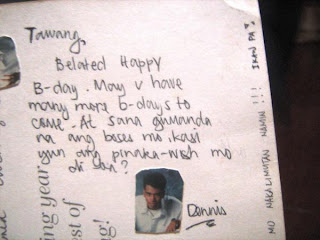 Tawang,
Belated Happy
B-day. May v have
many more b-days to
come. At sana gumanda
na ang boses mo, kasi
yun ang pinaka-wish mo
di ba?
Dennis
MO NAKALIMUTAN NAMIN !!! IKAW PA?
ing year
ist of
ng!